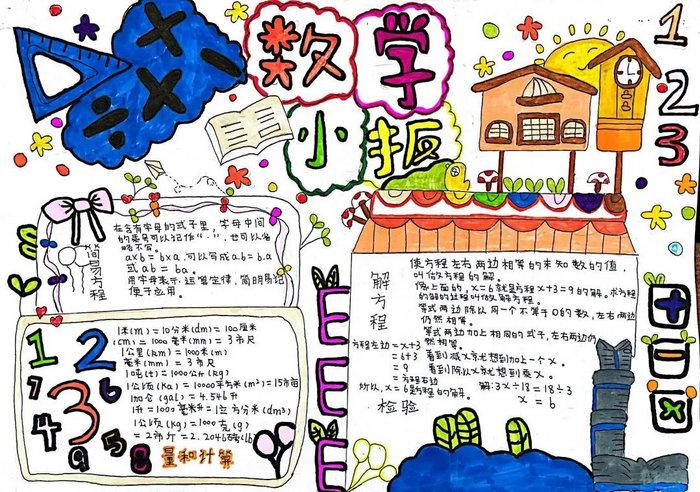 数学
小报
1
2
3
简易方程
在含有字母的式子里，字母中间
的乘号可以记作“·”，也可以省
略不写。
a×b=b×a，可以写成a·b=b·a
或ab=ba。
用字母表示运算定律，简明易记
便于应用。
1米(m)=10分米(dm)=100厘米
(cm)=1000毫米(mm)=3市尺
1公里(km)=1000米(m)
毫米(mm)=3市尺
1吨(t)=1000公斤(kg)
1公顷(ha)=10000平方米(m²)=15市亩
加仑(gal)=4.546升
1升=1000毫升=1立方分米(dm³)
(kg)=1000克(g)
=2市斤=2.2046磅(lb)
量和计算
1 2 3 7 6 4 1 9 5 8
解方程
使方程左右两边相等的未知数的值，
叫做方程的解。
像上面的，x=6就是方程x+3=9的解。求方程
的解的过程叫做解方程。
等式两边除以同一个不等于0的数，左右两边
仍然相等。
等式两边加上相同的式子，左右两边仍
然相等。
方程左边=x+3
=6+3 看到减x就想到加上一个x。
=9 看到除以x就想到乘x。
=方程右边
所以，x=6是方程的解。 解:3x÷18=18÷3
x=6
检验